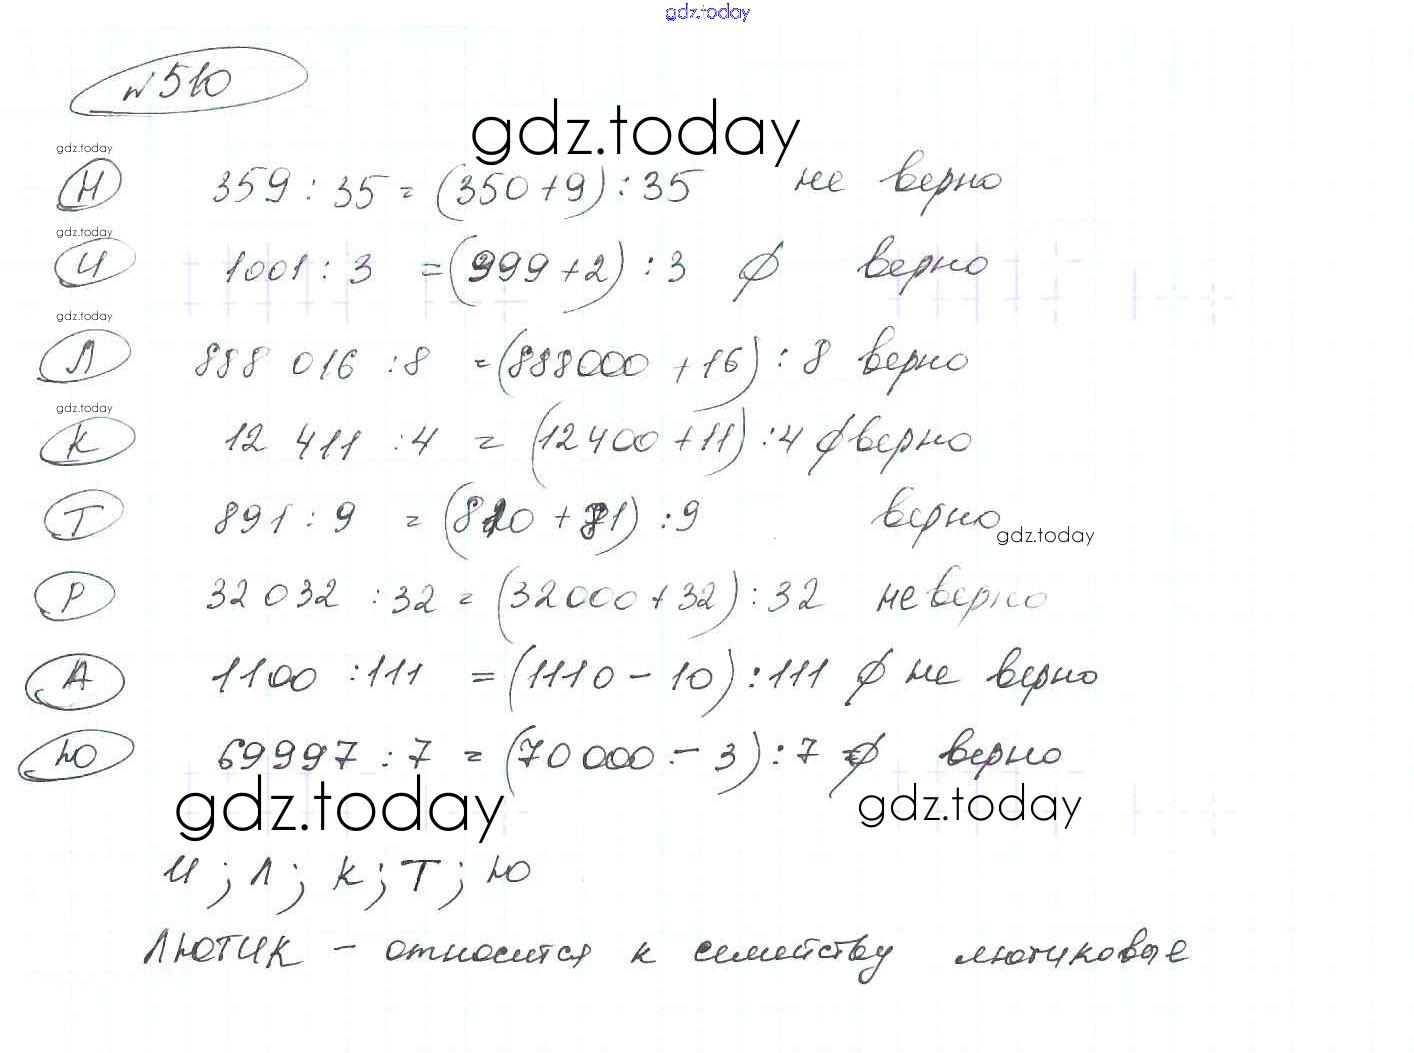 gdz.today
№ 510
gdz.today
gdz.today
Н 359 : 35 = (350 + 9) : 35 не верно
gdz.today
И 1001 : 3 = (999 + 2) : 3 верно
gdz.today
Л 888 016 : 8 = (888000 + 16) : 8 верно
gdz.today
К 12 411 : 4 = (12400 + 11) : 4 верно
Т 891 : 9 = (810 + 81) : 9 верно
gdz.today
Р 32 032 : 32 = (32000 + 32) : 32 не верно
А 1100 : 111 = (1110 - 10) : 111 не верно
Ю 69997 : 7 = (70 000 - 3) : 7 верно
gdz.today
gdz.today
И ; Л ; К ; Т ; Ю
ЛЮТИК - относится к семейству лютиковые